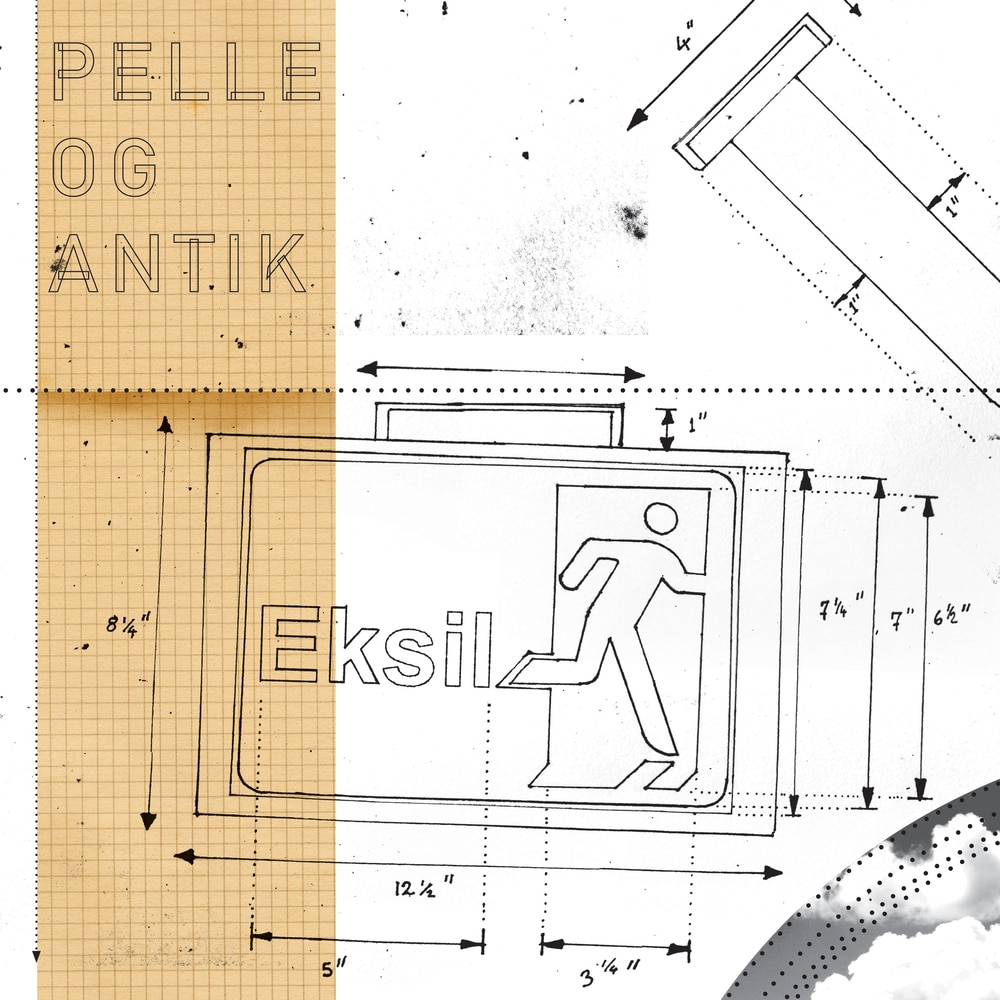 PELLE
OG
ANTIK
4"
1"
1"
1"
8 1/4"
Eksil
7 1/4"
7"
6 1/2"
12 1/2"
5"
3 1/4"